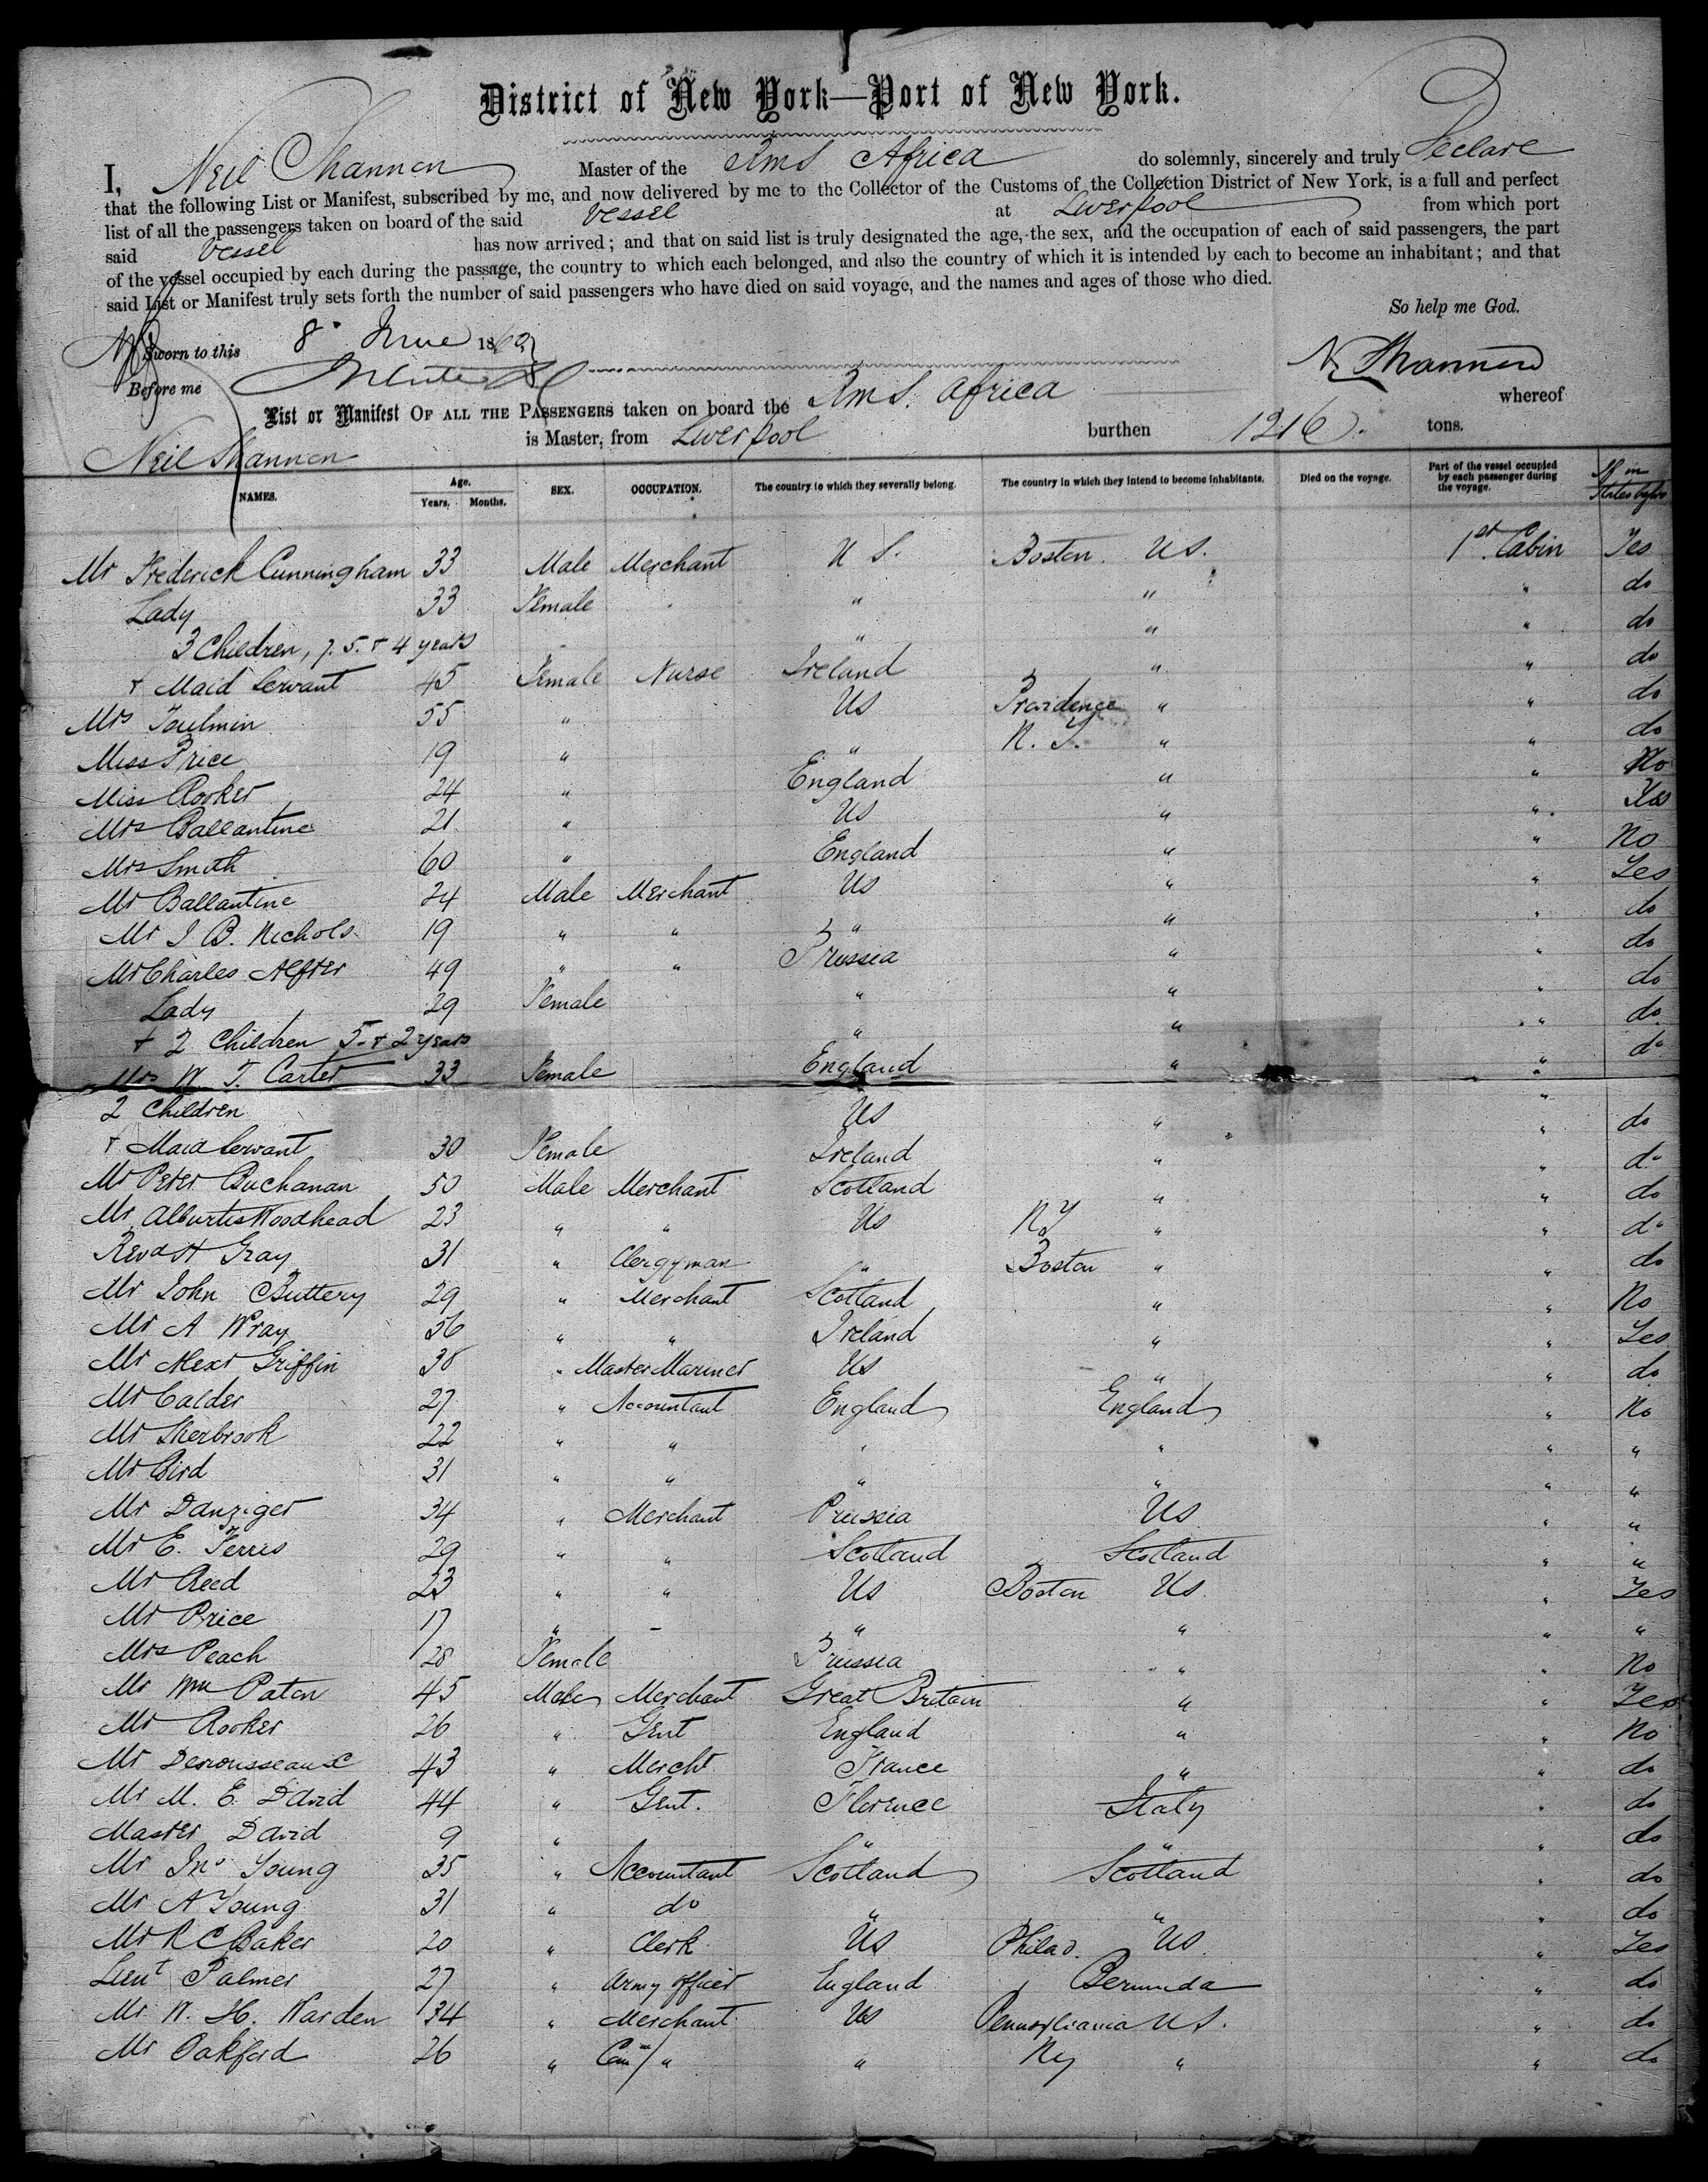 District of New York—Port of New York.
I, Neil Shannon Master of the RmS Africa do solemnly, sincerely and truly Declare
that the following List or Manifest, subscribed by me, and now delivered by me to the Collector of the Customs of the Collection District of New York, is a full and perfect
list of all the passengers taken on board of the said Vessel at Liverpool from which port
said Vessel has now arrived; and that on said list is truly designated the age, the sex, and the occupation of each of said passengers, the part
of the vessel occupied by each during the passage, the country to which each belonged, and also the country of which it is intended by each to become an inhabitant; and that
said List or Manifest truly sets forth the number of said passengers who have died on said voyage, and the names and ages of those who died.
So help me God.
Sworn to this 8" June 1860
N Shannon
Before me
List or Manifest OF ALL THE PASSENGERS taken on board the RmS. Africa whereof
Neil Shannon is Master, from Liverpool burthen 1216. tons.
NAMES. Age. Years. Months. SEX. OCCUPATION. The country to which they severally belong. The country in which they intend to become inhabitants. Died on the voyage. Part of the vessel occupied by each passenger during the voyage. If in States before
Mr Frederick Cunningham 33 Male Merchant U S. Boston U S. 1st Cabin Yes
Lady 33 Female " " " do
3 Children, 7. 5. + 4 years " " " do
+ Maid Servant 45 Female Nurse Ireland " " do
Mrs Toulmin 55 " US Providence " " do
Miss Price 19 " " N. Y. " " do
Miss Rooker 24 " England " " No
Mrs Ballantine 21 " US " " Yes
Mrs Smith 60 " England " " No
Mr Ballantine 24 Male Merchant US " " Yes
Mr J B. Nichols 19 " " " " " do
Mr Charles Alfter 49 " " Prussia " " do
Lady 29 Female " " " do
+ 2 Children 5 + 2 years " " " do
Mrs W. T. Carter 33 Female England " " do
2 Children US " " do
+ Maid Servant 30 Female Ireland " " do
Mr Peter Buchanan 50 Male Merchant Scotland " " do
Mr Alburtis Woodhead 23 " " US NY " " do
Revd H Gray 31 " Clergyman " Boston " " do
Mr John Buttery 29 " Merchant Scotland " " No
Mr A Wray 56 " " Ireland " " Yes
Mr Alexr Griffin 38 " Master Mariner US " " do
Mr Calder 27 " Accountant England England " No
Mr Sherbrook 22 " " " " " "
Mr Bird 31 " " " " " "
Mr Danziger 34 " Merchant Prussia US " "
Mr E. Ferres 29 " " Scotland Scotland " "
Mr Reed 23 " " US Boston US. " Yes
Mr Price 17 " - " " " "
Mrs Peach 28 Female Prussia " " No
Mr Wm Paton 45 Male Merchant Great Britain " " Yes
Mr Rooker 26 " Gent England " " No
Mr Desrousseaux 43 " Mercht France " " do
Mr M. E. David 44 " Gent. Florence Italy " do
Master David 9 " " " " do
Mr Jno Young 35 " Accountant Scotland Scotland " do
Mr A Young 31 " do " " " do
Mr R C Baker 20 " Clerk US Philad. US. " Yes
Lieut Palmer 27 " Army officer England Bermuda " do
Mr W. H. Warden 34 " Merchant US Pennsylvania U S. " do
Mr Oakford 26 " " " Ny " " do